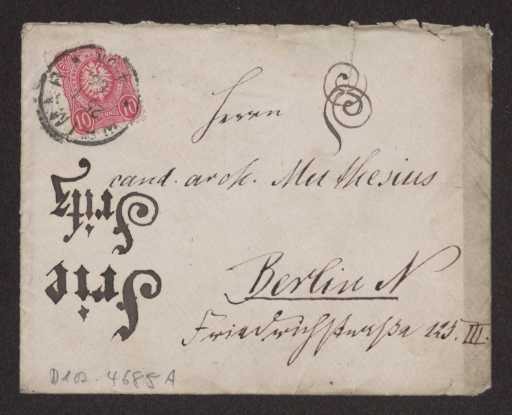 Herrn
cand. arch. Muthesius
Berlin N
Friedrichstraße 125. III.
Fritz
10
D102-4685 A